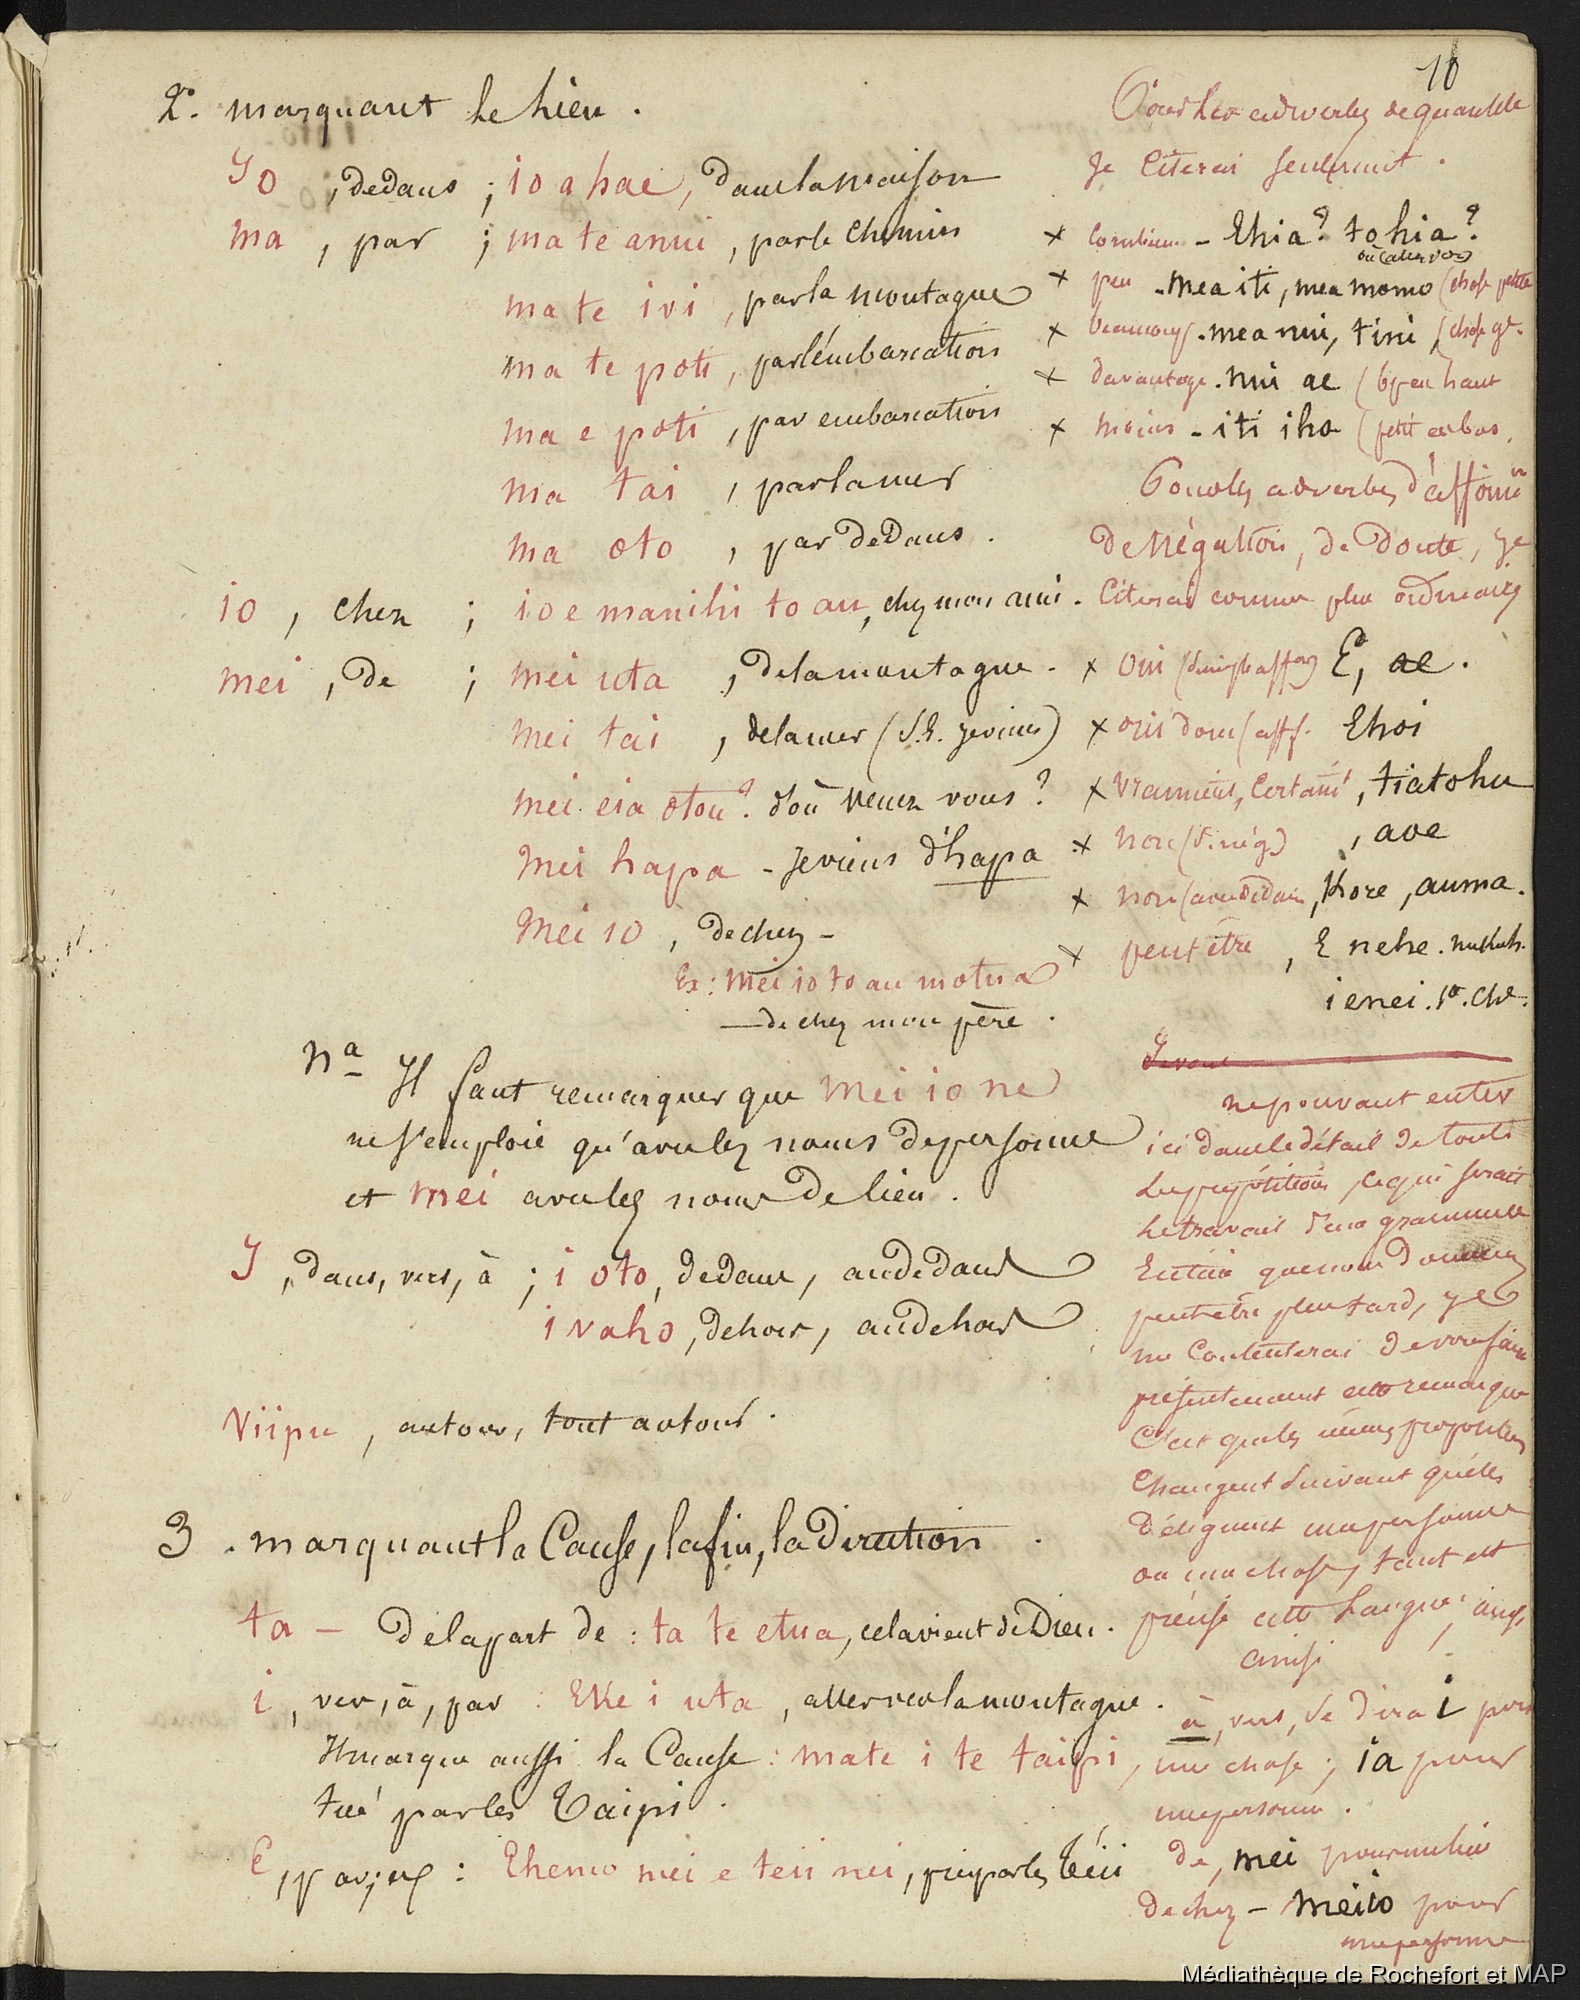 10
2º. marquant le lieu.
Io, dedans; io a hae, dans la maison
ma, par; ma te anui, par le chemin
ma te ivi, par la montagne
ma te poti, par l'embarcation
ma e poti, par embarcation
ma tai, par la mer
ma oto, par dedans.
io, chez; io e manihi to au, chez mon ami.
mei, de; mei uta, de la montagne.
mei tai, de la mer (S.E. je viens)
mei eia otou? d'où venez vous?
Mei hapa - je viens d'hapa
Mei io, de chez -
Ex: Mei io to au motua
— de chez mon père.
Nª Il faut remarquer que Mei io ne
ne s'emploie qu'avec les noms de personne
et mei avec les noms de lieu.
I, dans, vers, à; i oto, dedans, au dedans
i vaho, dehors, au dehors
Viipu, autour, tout autour.
3. marquant la Cause, la fin, la Direction.
ta — de la part de: ta te etua, cela vient de Dieu.
i, vers, à, par: Eke i uta, aller vers la montagne.
Il marque aussi la Cause: mate i te taipi,
tué par les Taipi.
E, par: Ehemo mei e teii nei, pris par les Téii
Pour les adverbes de quantité
je citerai seulement.
x combien - Ehia? tohia?
x peu - mea iti, mea momo (chose petite
x beaucoup - mea nui, tini, (chose gr.
x davantage - nui ae (
x moins - iti iho (petit en bas.
Pour les adverbes d'affirm
de Négation, de Doute, je
citerai comme plus ordinaires
x oui E, ae.
x oui donc (aff. Ehoi
x vraiment, certain, tiatohu
x non (s. nég.), aoe
x non (avec dédain, Kore, auma.
x peut être, E nehe.
ienei.
Je vous
ne pouvant entrer
ici dans le détail de toutes
les prépositions, ce qui serait
le travail d'une grammaire
Entière que nous donnerons
peut être plus tard, je
me Contenterai de vous faire
présentement cette remarque
C'est que les mêmes prépositions
Changent suivant qu'elles
Désignent une personne
ou une chose, tant est
précise cette Langue;
ainsi
à, vers, se dira i pour
une chose; ia pour
une personne.
de, mei pour un lieu
de chez - meiio pour
une personne
Médiathèque de Rochefort et MAP